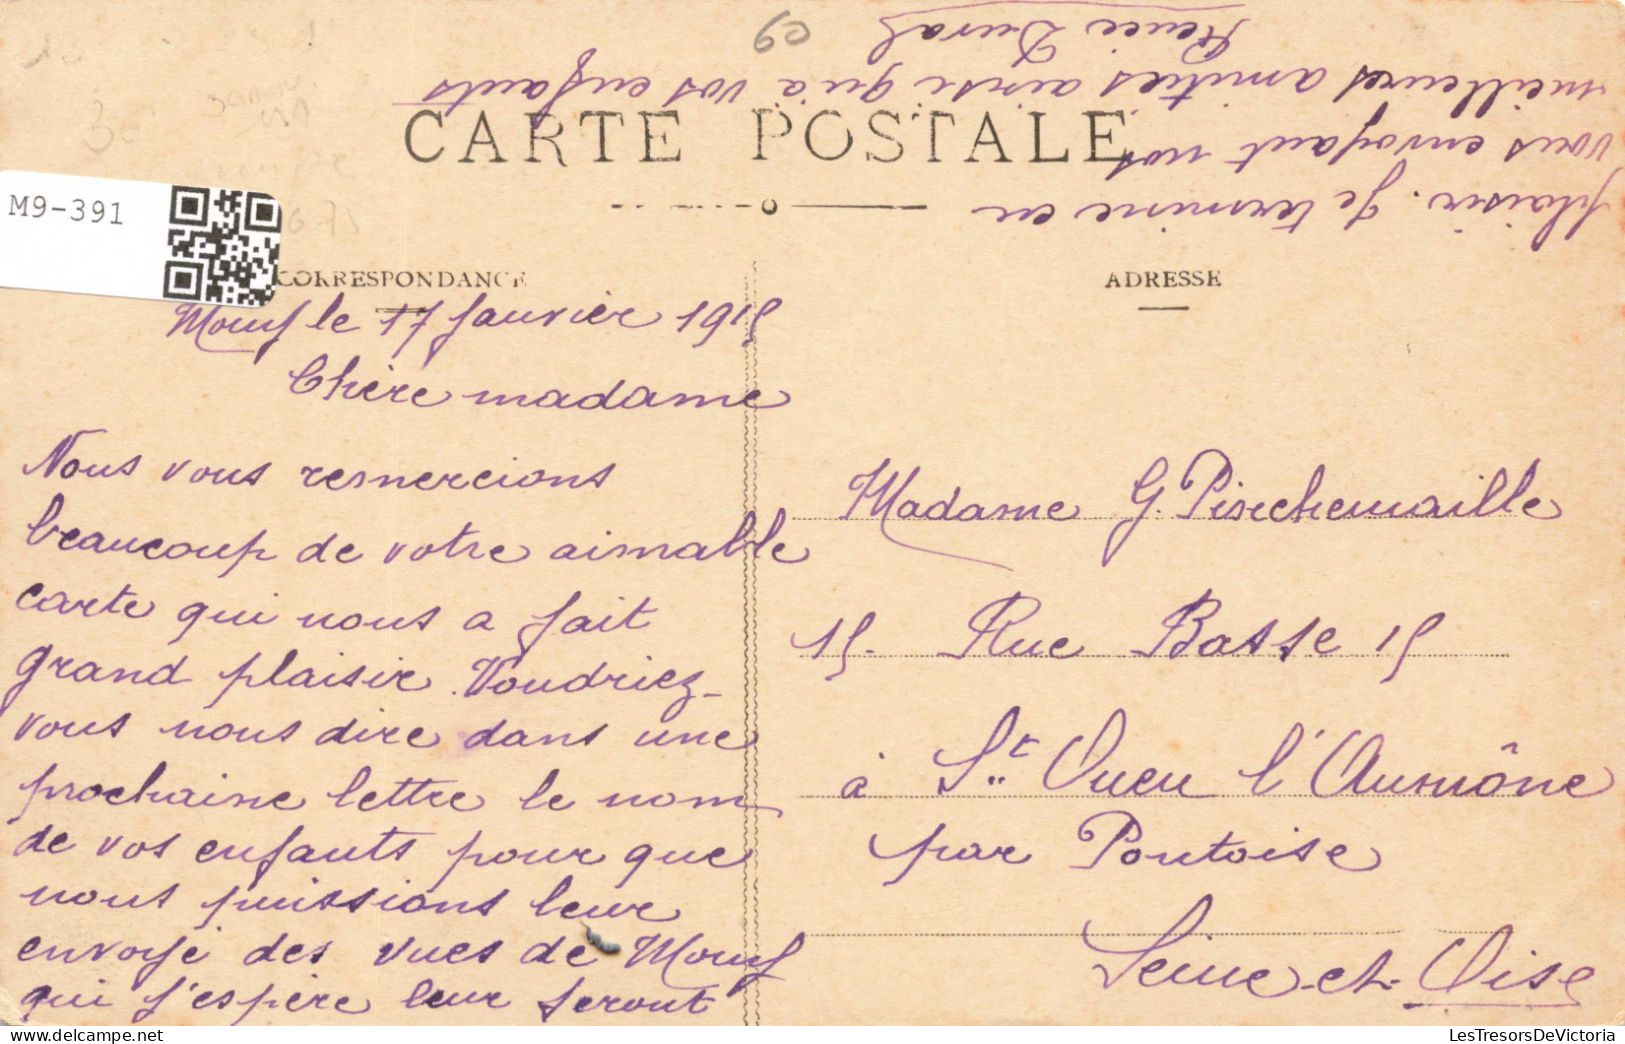 CARTE POSTALE
M9-391
CORRESPONDANCE
ADRESSE
le 17 janvier 1915
Chère madame
Nous vous remercions
beaucoup de votre aimable
carte qui nous a fait
grand plaisir. Voudriez-
vous nous dire dans une
prochaine lettre le nom
de vos enfants pour que
nous puissions leur
envoyé des vues de Mouy
qui j'espère leur seront
plaisir. Je termine en
vous envoyant nos
meilleures amitiés ainsi qu'a vos enfants
Duval
Madame G. Pischemaille
15. Rue Basse 15
à St. Ouen l'Aumône
par Pontoise
Seine-et-Oise
69
LesTresorsDeVictoria.com